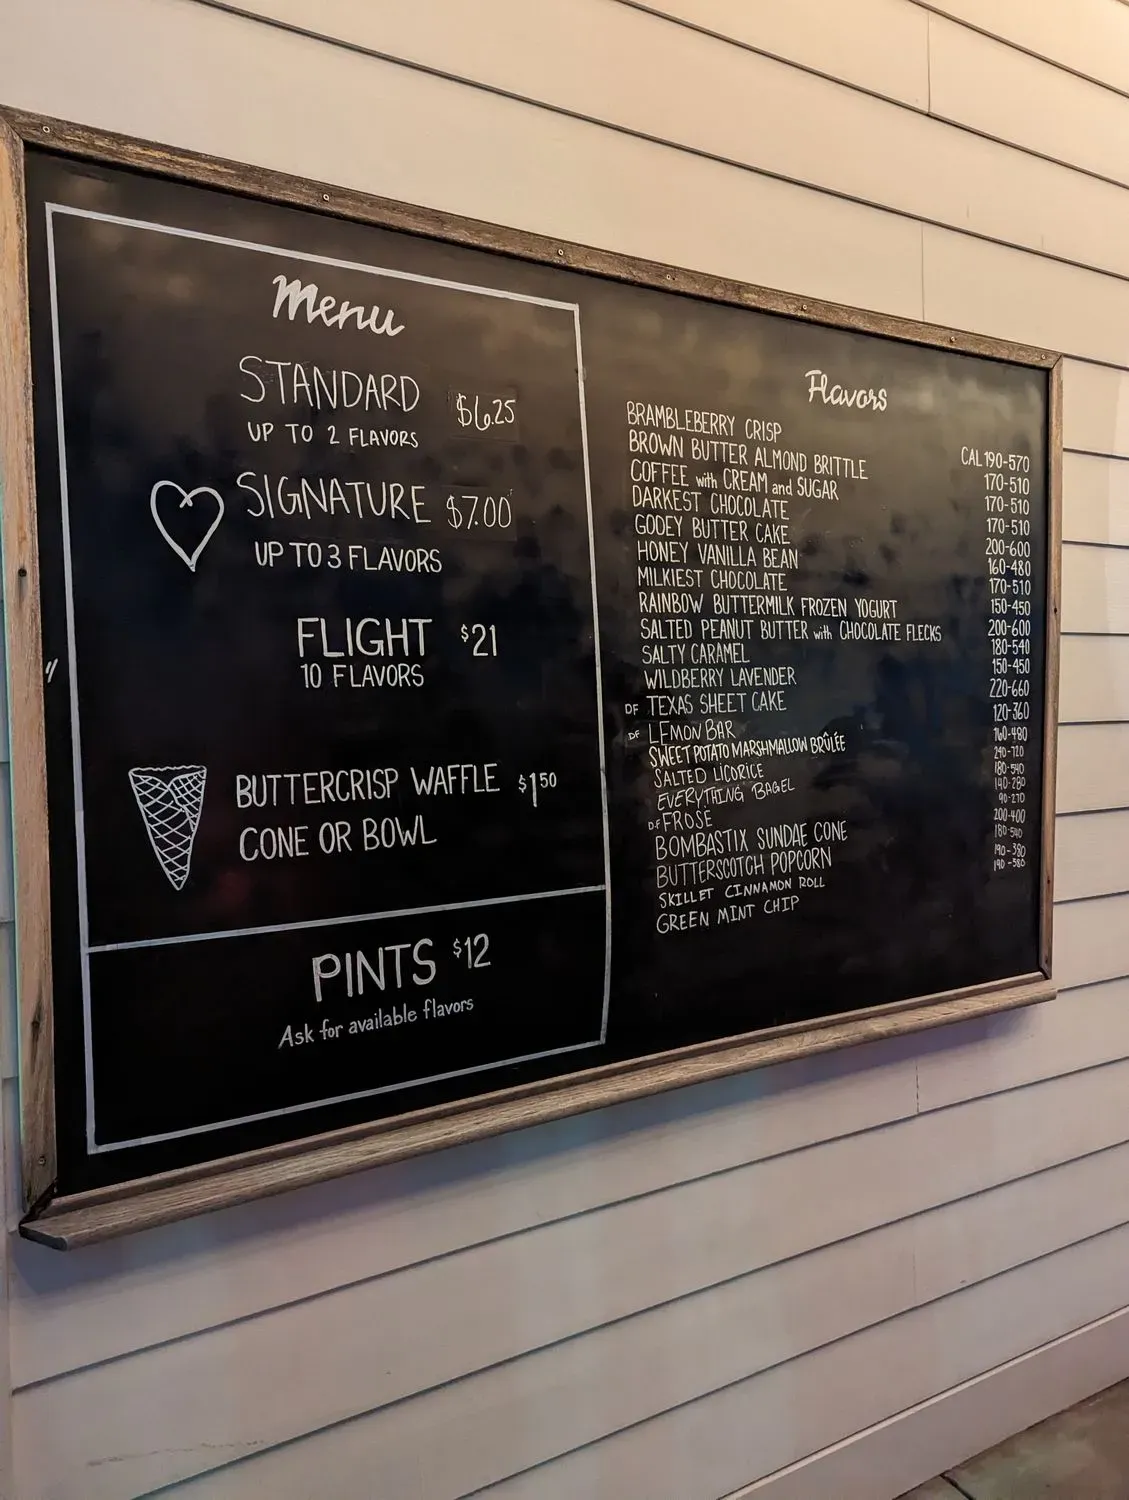 Menu
STANDARD $6.25
UP TO 2 FLAVORS
SIGNATURE $7.00
UP TO 3 FLAVORS
FLIGHT $21
10 FLAVORS
BUTTERCRISP WAFFLE $1.50
CONE OR BOWL
PINTS $12
Ask for available flavors
Flavors
BRAMBLEBERRY CRISP
BROWN BUTTER ALMOND BRITTLE
COFFEE with CREAM and SUGAR
DARKEST CHOCOLATE
GOOEY BUTTER CAKE
HONEY VANILLA BEAN
MILKIEST CHOCOLATE
RAINBOW BUTTERMILK FROZEN YOGURT
SALTED PEANUT BUTTER with CHOCOLATE FLECKS
SALTY CARAMEL
WILDBERRY LAVENDER
DF TEXAS SHEET CAKE
DF LEMON BAR
SWEET POTATO MARSHMALLOW BRÛLÉE
SALTED LICORICE
EVERYTHING BAGEL
DF FROSÉ
BOMBASTIX SUNDAE CONE
BUTTERSCOTCH POPCORN
SKILLET CINNAMON ROLL
GREEN MINT CHIP
CAL 190-570
170-510
170-510
170-510
200-600
160-480
170-510
150-450
200-600
180-540
150-450
220-660
120-360
160-480
240-720
180-540
140-280
90-270
200-400
180-540
190-380
190-580